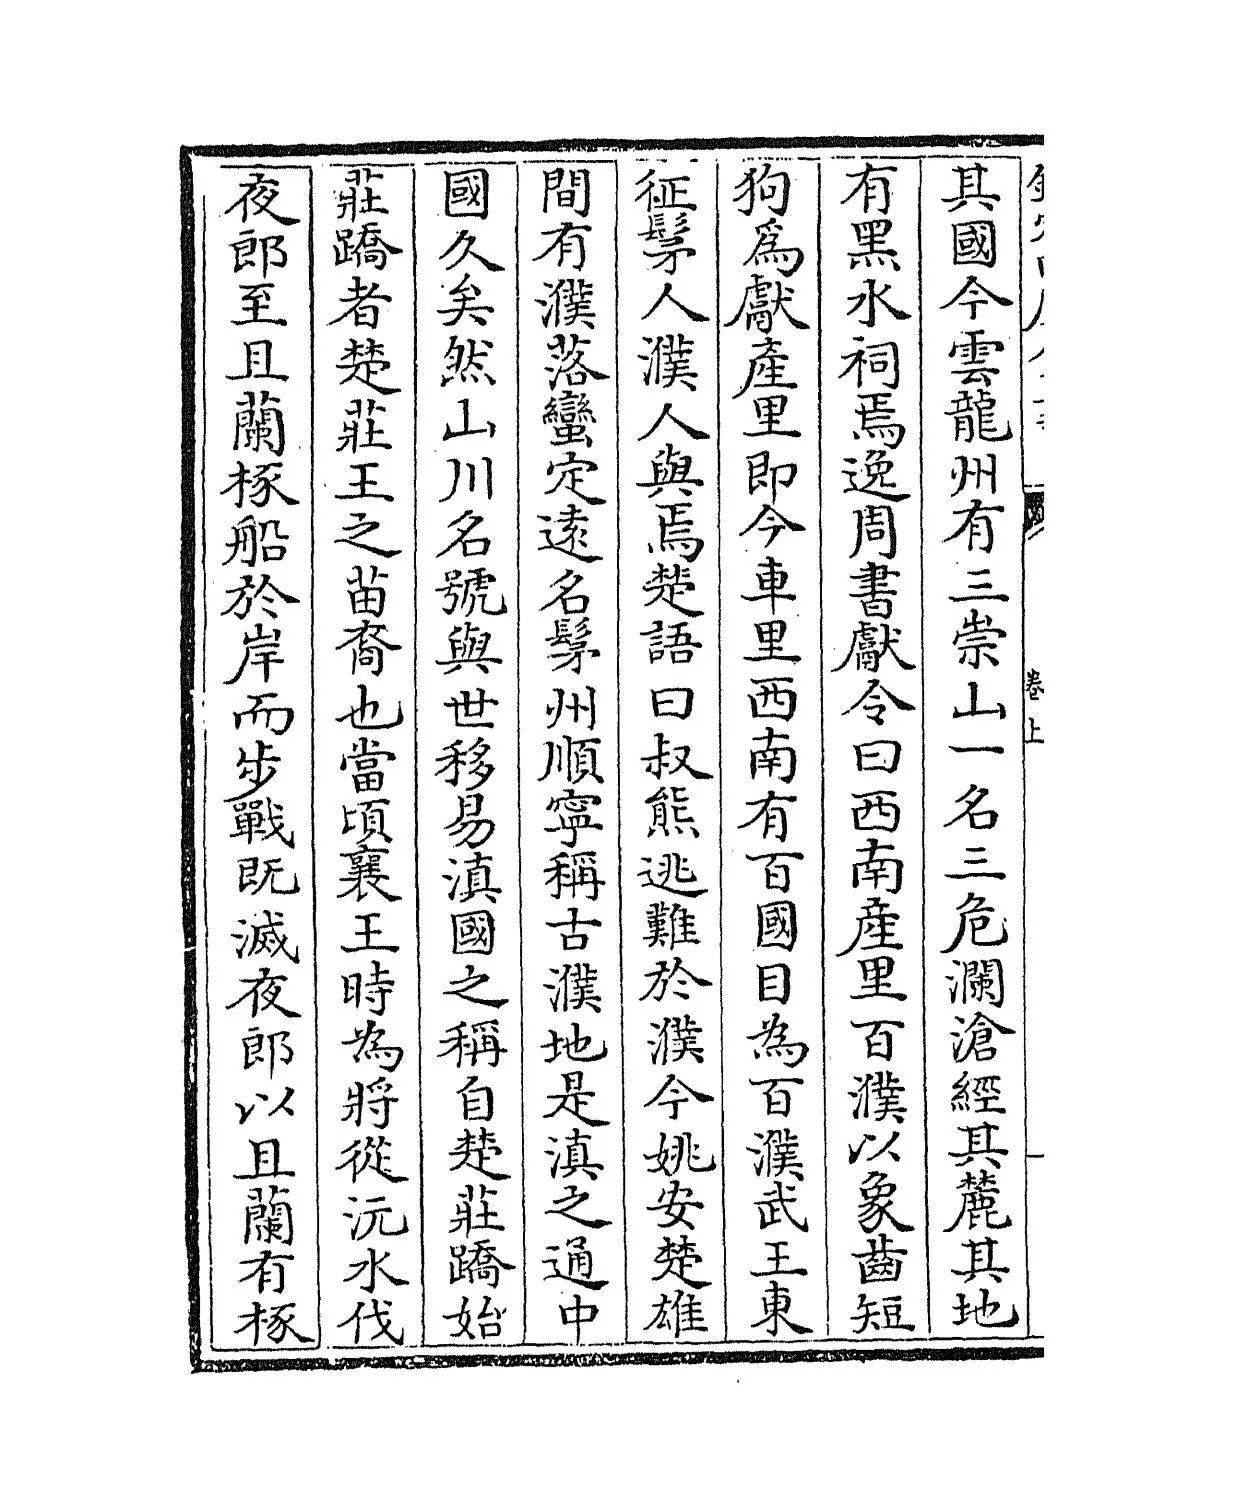 其國今雲龍州有三崇山一名三危瀾滄經其麓其地
有黑水祠焉逸周書獻令曰西南產里百濮以象齒短
狗為獻產里即今車里西南有百國目為百濮武王東
征髳人濮人與焉楚語曰叔熊逃難於濮今姚安楚雄
間有濮落蠻定遠名髳州順寧稱古濮地是滇之通中
國久矣然山川名號與世移易滇國之稱自楚莊蹻始
莊蹻者楚莊王之苗裔也當頃襄王時為將從沅水伐
夜郎至且蘭椓船於岸而步戰既滅夜郎以且蘭有椓
卷上